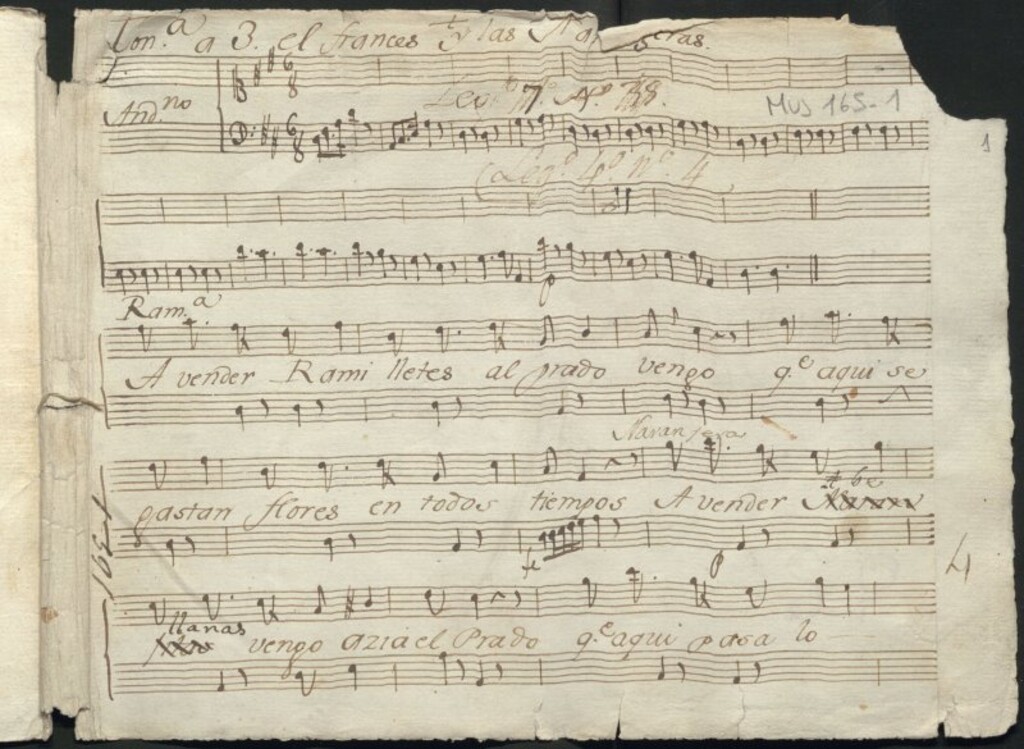 Ton.ª a 3. el frances y las
And.no
Leg.º 7.º
MUS 165-1
1
(Leg.º 4.º nº. 4
Ram.ª
A vender Rami lletes al prado vengo q.e aqui se
Naranjera
gastan flores en todos tiempos A vender
4
llanas
vengo azia el Prado q.e aqui pasa lo